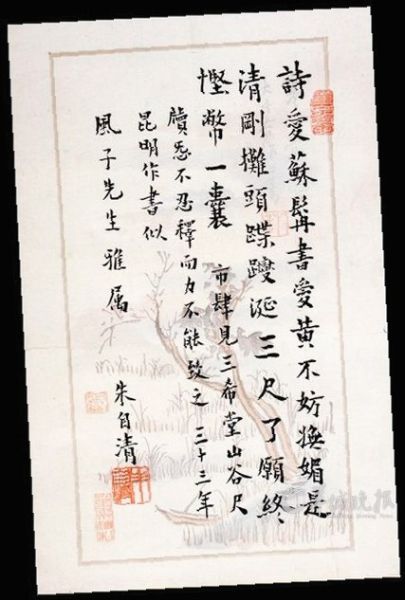 詩愛蘇髯書愛黃不妨嫵媚是
清剛攤頭蹀躞涎三尺了願終
慳幣一囊 市肆見三希堂山谷尺
牘愛不忍釋而力不能致之 三十三年
昆明作書似
風子先生雅属
朱自清
城晚报